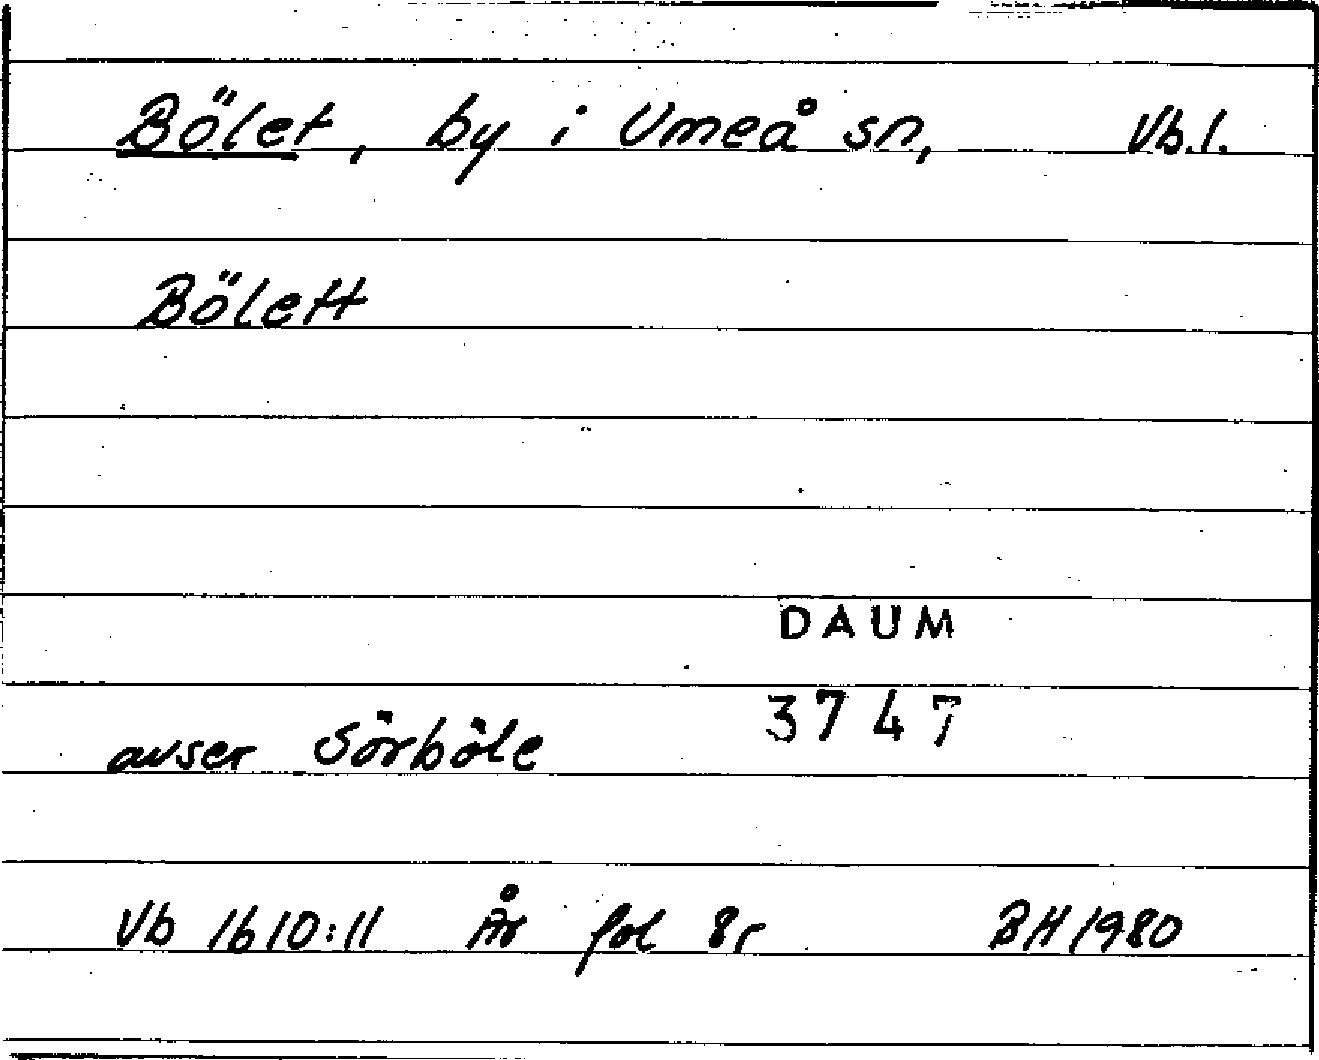 Bölet, by i Umeå sn, Vb.l.
Bölett
DAUM
3747
avser Sörböle
Vb 1610:11 År fol 8r BH 1980